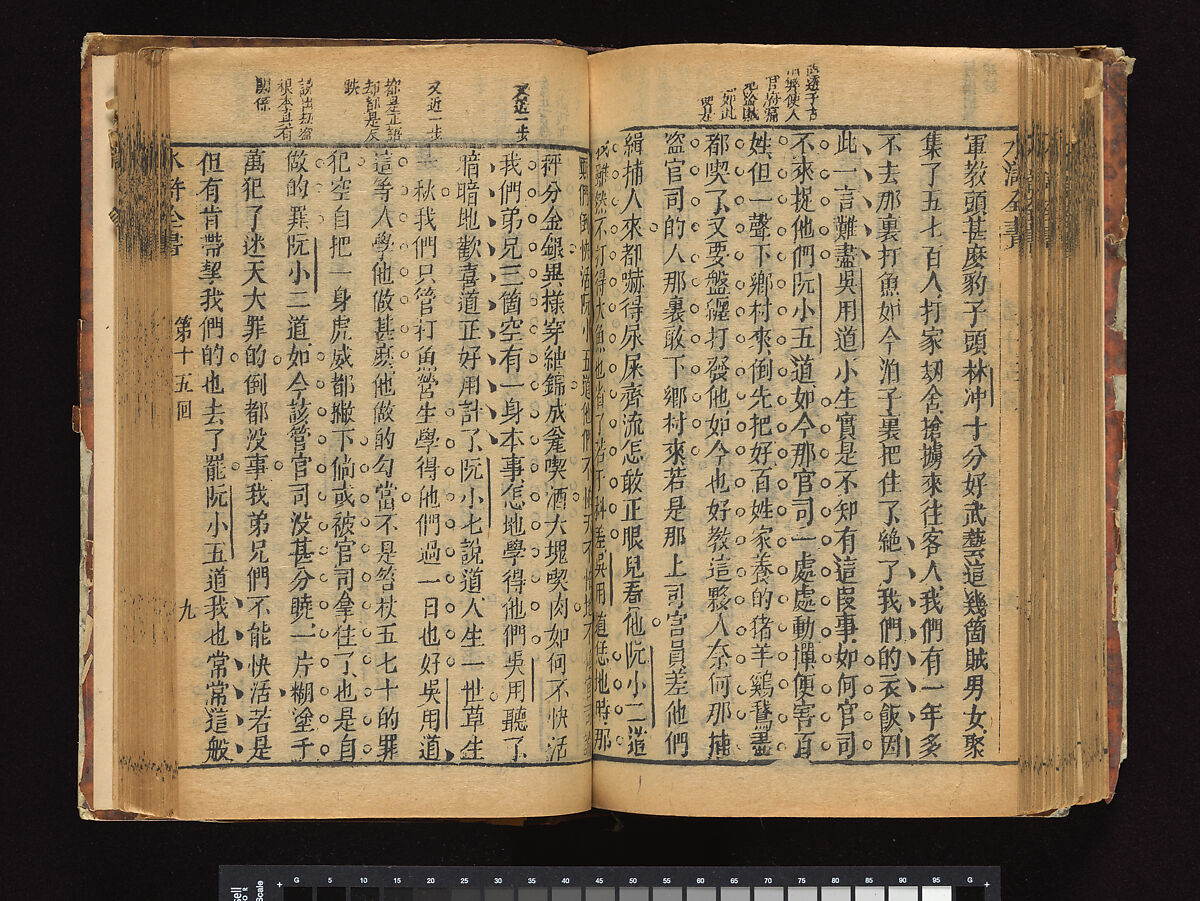 水滸全書
軍教頭甚麽豹子頭林冲十分好武藝這幾箇賊男女聚
集了五七百人打家刼舍搶擄來往客人我們有一年多
不去那裏打魚如今泊子裏把住了絶了我們的衣飯因
此一言難盡吳用道小生實是不知有這叚事如何官司
不來捉他們阮小五道如今那官司一處處動撣便害百
姓但一聲下鄉村來倒先把好百姓家養的猪羊鷄鵞盡
都喫了又要盤纏打發他如今也好教這夥人奈何那捕
盜官司的人那裏敢下鄉村來若是那上司官員差他們
緝捕人來都嚇得尿屎齊流怎敢正眼兒看他阮小二道
我雖然不打得大魚也省了若干科差吳用道恁地時那
秤分金銀異樣穿紬錦成瓮喫酒大塊喫肉如何不快活
我們弟兄三箇空有一身本事怎地學得他們吳用聽了
暗暗地歡喜道正好用計了阮小七說道人生一世草生
一秋我們只管打魚營生學得他們過一日也好吳用道
這等人學他做甚麽他做的勾當不是笞杖五七十的罪
犯空自把一身虎威都撇下倘或被官司拿住了也是自
做的罪阮小二道如今該管官司没甚分曉一片糊塗千
萬犯了迷天大罪的倒都没事我弟兄們不能快活若是
但有肯帶挈我們的也去了罷阮小五道我也常常這般
水滸全書
第十五回
九
又近一步
又近一步
都是正語
却都是反
跌
說出刼盜
根本真有
關係